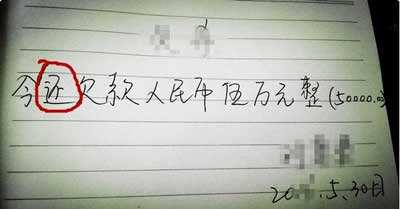 今还欠款人民币伍万元整(50000.00
20 .5.30日